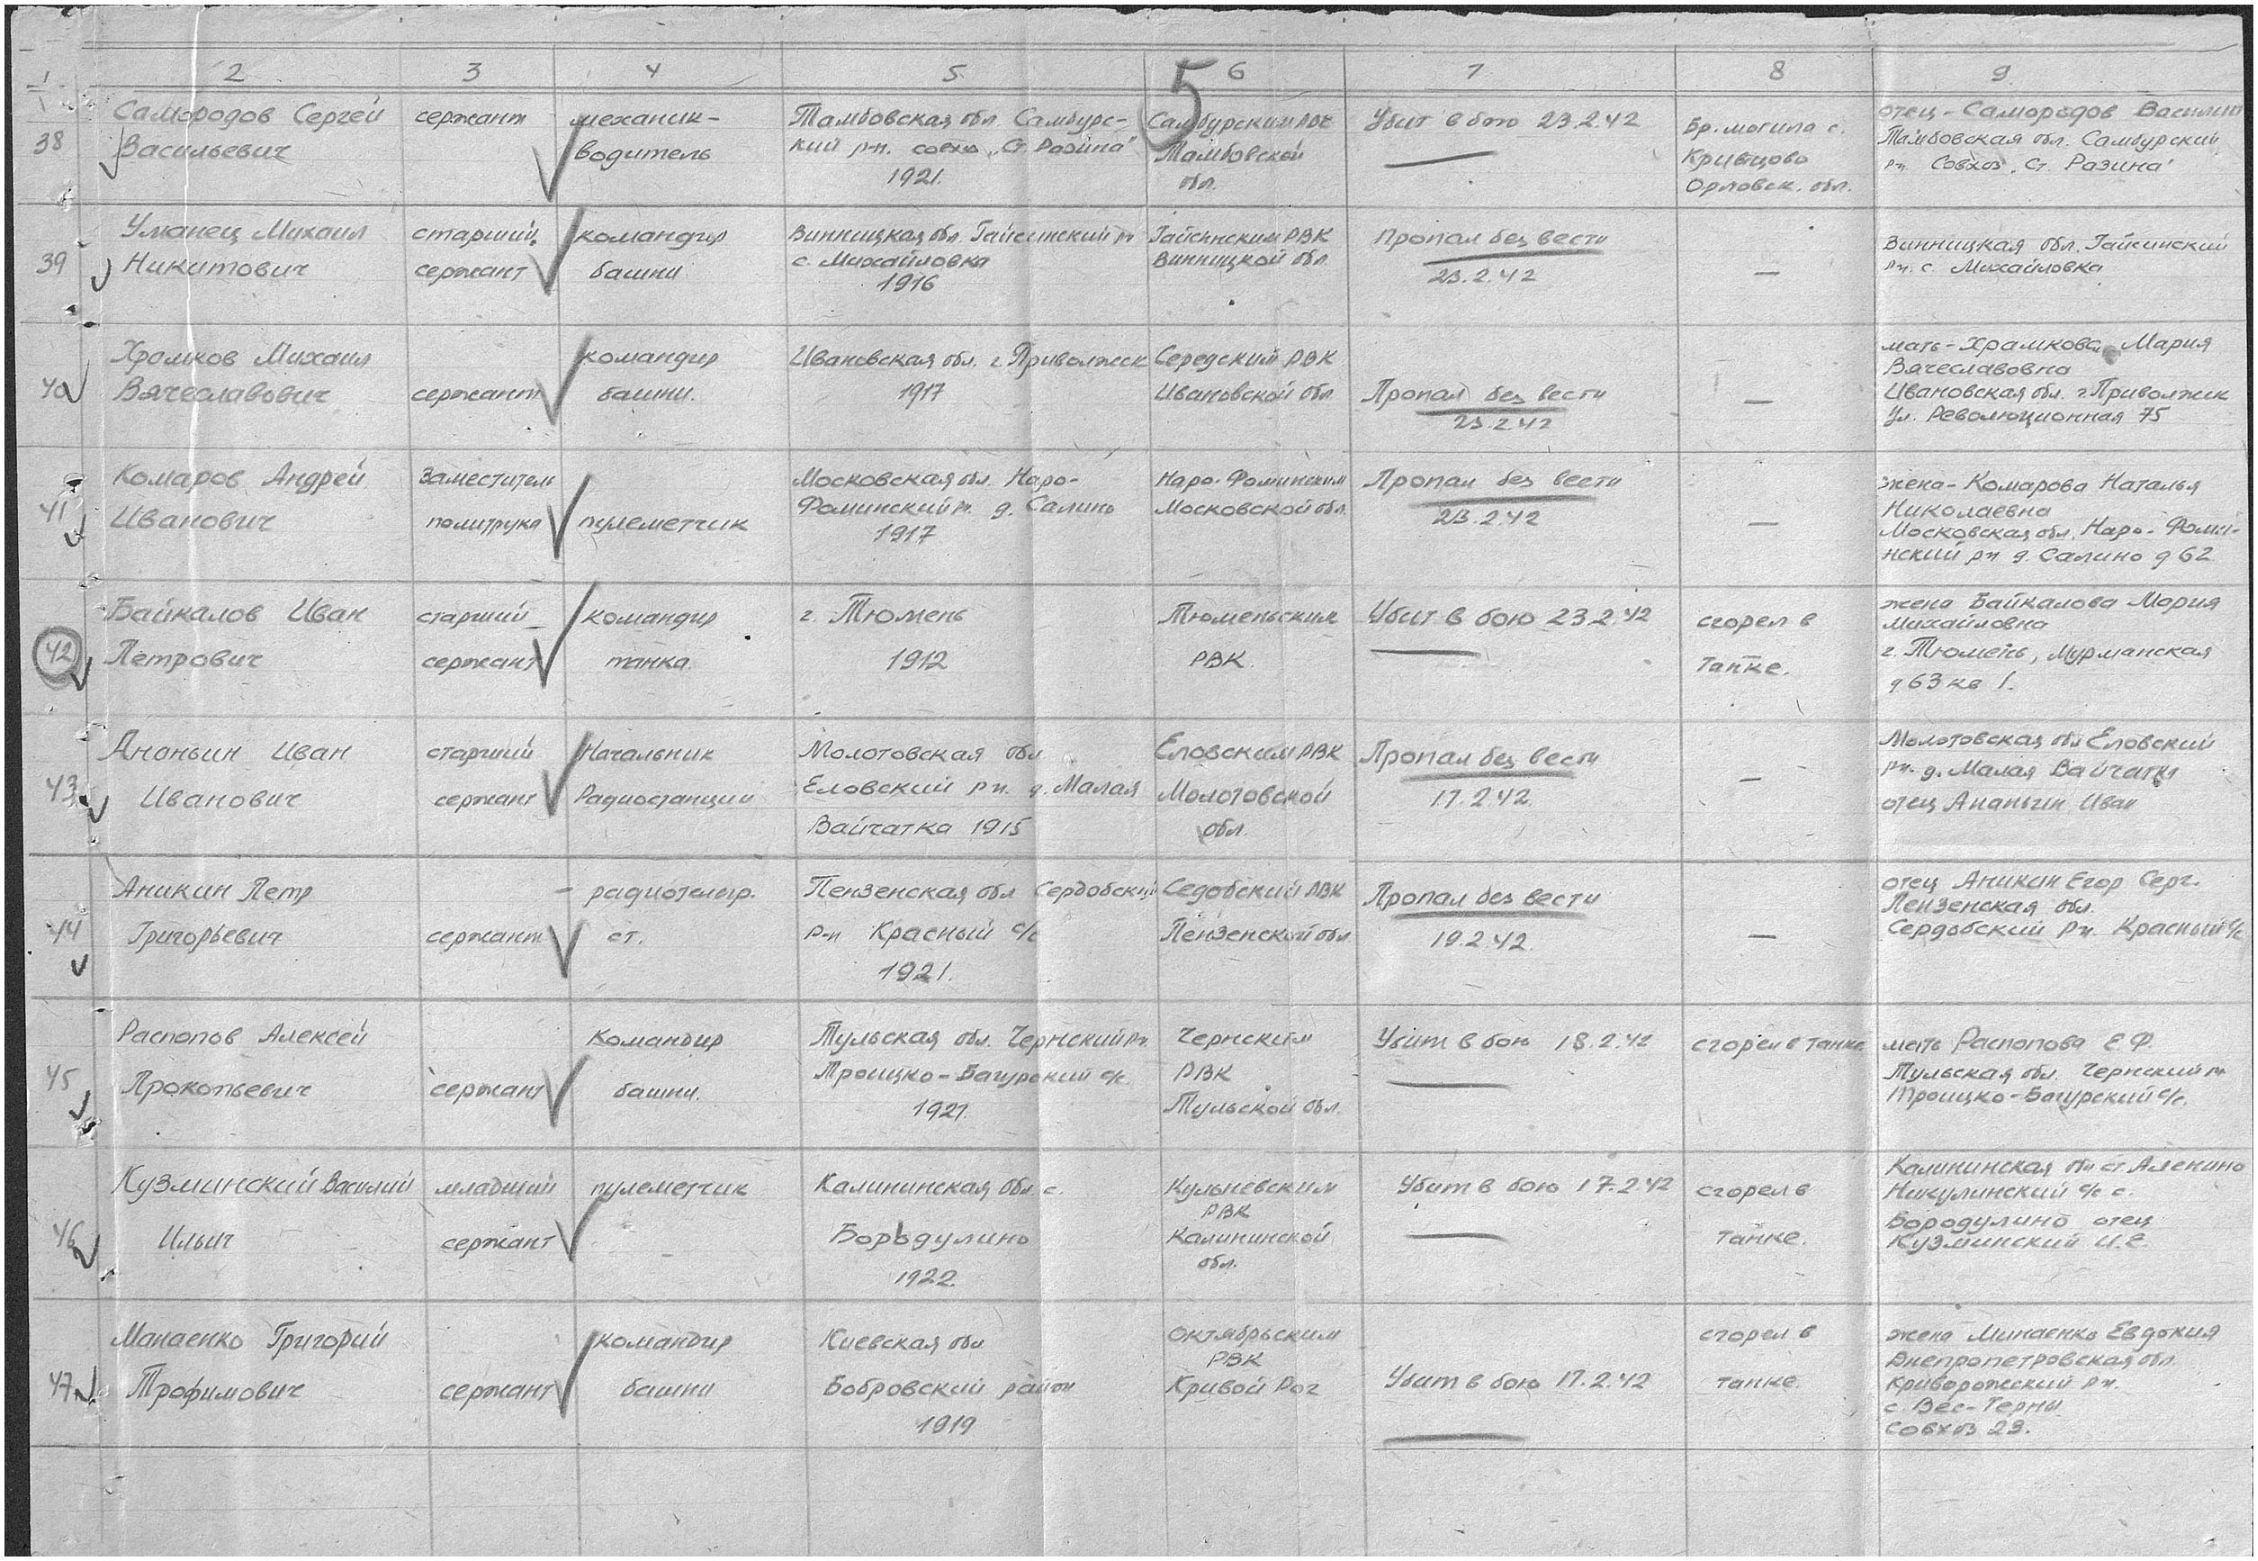 1 2 3 4 5 6 7 8 9
5
38 Самородов Сергей сержант механик- Тамбовская обл. Самбурс- Самбурским РВК Убит в бою 23.2.42 Бр. могила с. отец - Самородов Василий
Васильевич водитель кий р-н. совхоз „Ст. Разина" Тамбовской Кривцово Тамбовская обл. Самбурский
1921. обл. Орловск. обл. рн. Совхоз „Ст. Разина"
39 Уманец Михаил старший командир Винницкая обл. Гайсинский рн Гайсинским РВК Пропал без вести Винницкая обл. Гайсинский
Никитович сержант башни с. Михайловка Винницкой обл. 23.2.42 — рн. с. Михайловка
1916
40 Храмков Михаил командир Ивановская обл. г. Приволжск Середским РВК мать - Храмкова Мария
Вячеславович сержант башни. 1917 Ивановской обл. Пропал без вести — Вячеславовна
23.2.42 Ивановская обл. г. Приволжск
Ул. Революционная 75
41 Комаров Андрей Заместитель Московская обл. Наро- Наро-Фоминским Пропал без вести жена - Комарова Наталья
Иванович политрука пулеметчик Фоминский рн. д. Салино Московской обл. 23.2.42 — Николаевна
1917 Московская обл. Наро-Фоми-
нский рн д. Салино д 62
42 Байкалов Иван старший командир г. Тюмень Тюменьским Убит в бою 23.2.42 сгорел в жена Байкалова Мария
Петрович сержант танка. 1912 РВК. танке. Михайловна
г. Тюмень, Мурманская
д 63 кв 1.
43 Ананьин Иван старший Начальник Молотовская обл Еловским РВК Пропал без вести Молотовская обл Еловский
Иванович сержант Радиостанции Еловский рн. д. Малая Молотовской 17.2.42. — рн. д. Малая Вайчатка
Вайчатка 1915 обл. отец Ананьин Иван
44 Аникин Петр - радиотелегр. Пензенская обл Сердобский Седобский РВК Пропал без вести отец Аникин Егор Серг.
Григорьевич сержант ст. р-н Красный с/с Пензенской обл 19.2.42. — Пензенская обл.
1921. Сердобский рн. Красный с/с
45 Распопов Алексей Командир Тульская обл. Чернский рн. Чернским Убит в бою 18.2.42 сгорел в танке мать Распопова Е.Ф.
Прокопьевич сержант башни. Троицко-Бачурский с/с. РВК Тульская обл. Чернский рн
1921. Тульской обл. Троицко-Бачурский с/с.
46 Кузминский Василий младший пулеметчик Калининская обл. с. Кульневским Убит в бою 17.2.42 сгорел в Калининская обл ст. Аленино
Ильич сержант Бородулино РВК танке. Никулинский с/с с.
1922. Калининской Бородулино отец
обл. Кузминский И.Е.
47 Манаенко Григорий командир Киевская обл Октябрьским сгорел в жена Минаенко Евдокия
Трофимович сержант башни Бобровский район РВК Убит в бою 17.2.42 танке. Днепропетровская обл.
1919 Кривой Рог Криворожский рн.
с. Вес-Терны
Совхоз 29.